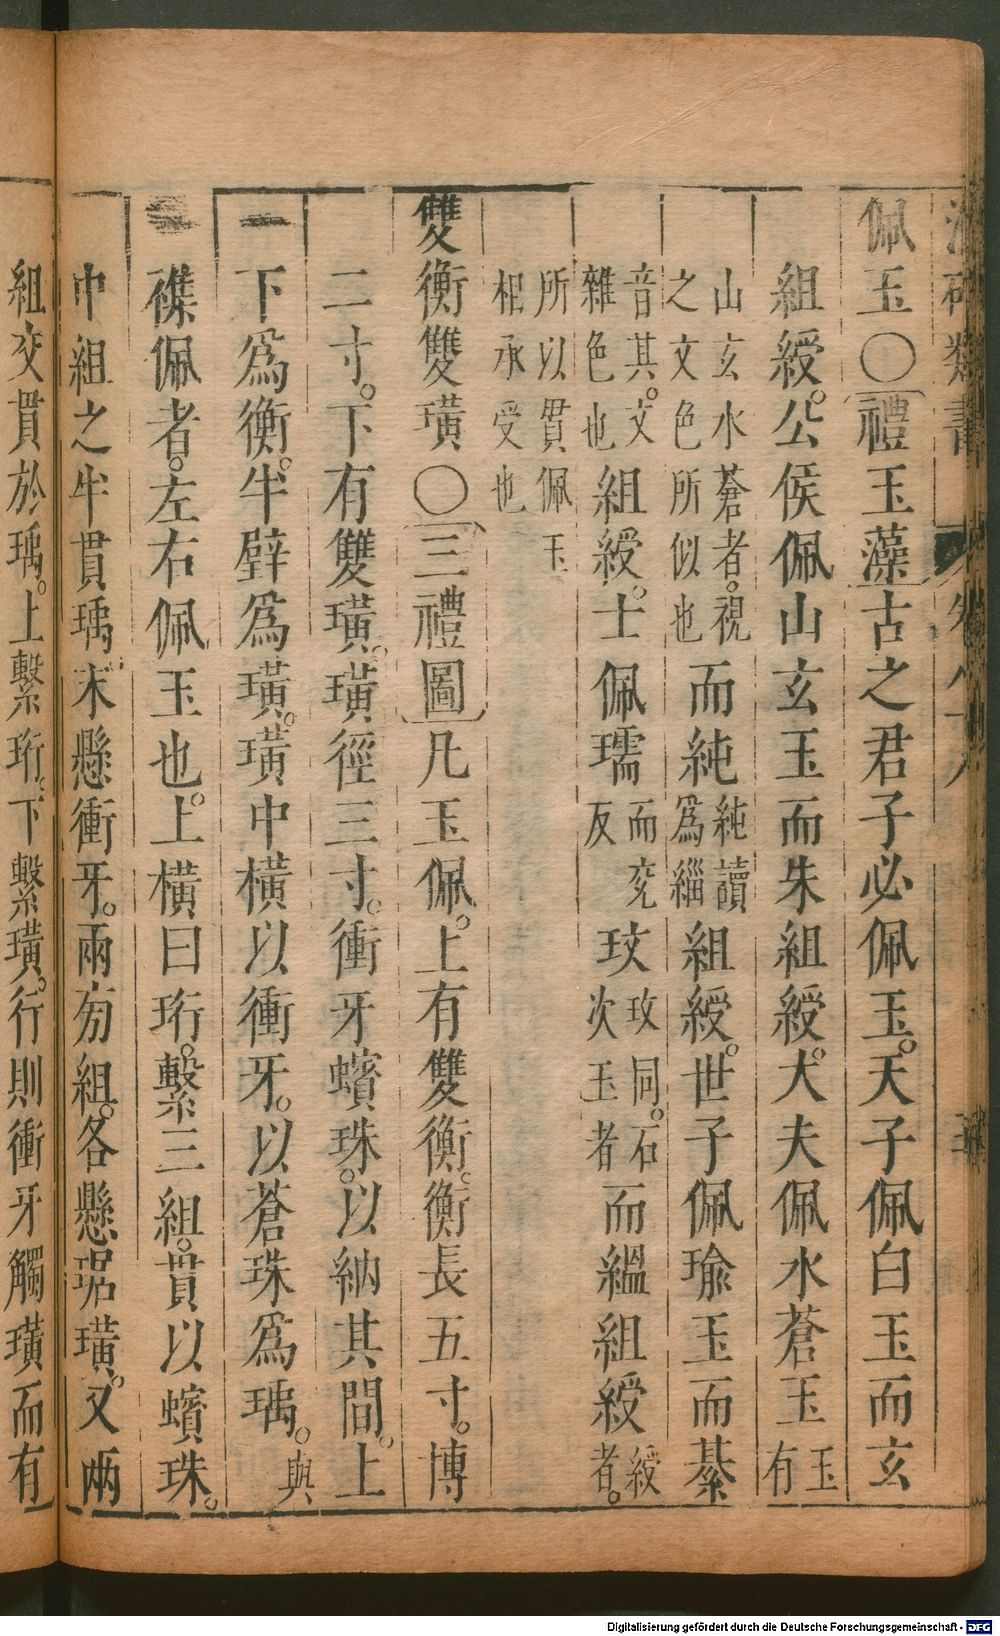 佩玉〇禮玉藻古之君子必佩玉。天子佩白玉而玄
組綬。公侯佩山玄玉而朱組綬。大夫佩水蒼玉玉有
山玄水蒼者。視之文色所似也而純純讀爲緇組綬。世子佩瑜玉而綦
音其。文雜色也組綬。士佩瓀而兖反玟玫同。石次玉者而縕組綬綬者。
所以貫佩玉相承受也
雙衡雙璜〇三禮圖凡玉佩。上有雙衡。衡長五寸。博
二寸。下有雙璜。璜徑三寸。衝牙蠙珠。以納其間。上
下爲衡。半璧爲璜。璜中橫以衝牙。以蒼珠爲瑀。與
襍佩者。左右佩玉也。上橫曰珩。繫三組。貫以蠙珠。
中組之半貫瑀。末懸衝牙。兩旁組。各懸琚璜。又兩
組交貫於瑀。上繫珩。下繫璜。行則衝牙觸璜而有
Digitalisierung gefördert durch die Deutsche Forschungsgemeinschaft - DFG